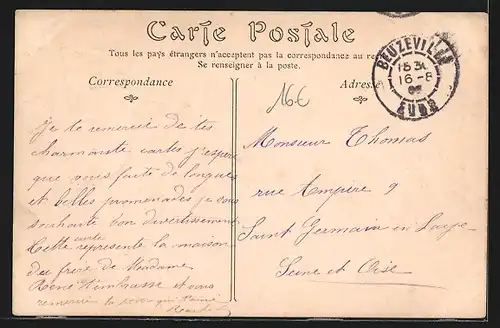 Carte Postale
Tous les pays étrangers n'acceptent pas la correspondance au
Se renseigner à la poste.
Correspondance
Adresse
BEUZEVILLE
16-8
EURE
16€
je te remercie de tes
charmante cartes j'espère
que vous faite de longues
et belles promenades je vous
souhaite bon divertissement
Cette carte représente la maison
du frère de Madame
René et vous
remercie
Monsieur Thomas
rue Ampère 9
Saint Germain en Laye
Seine et Oise